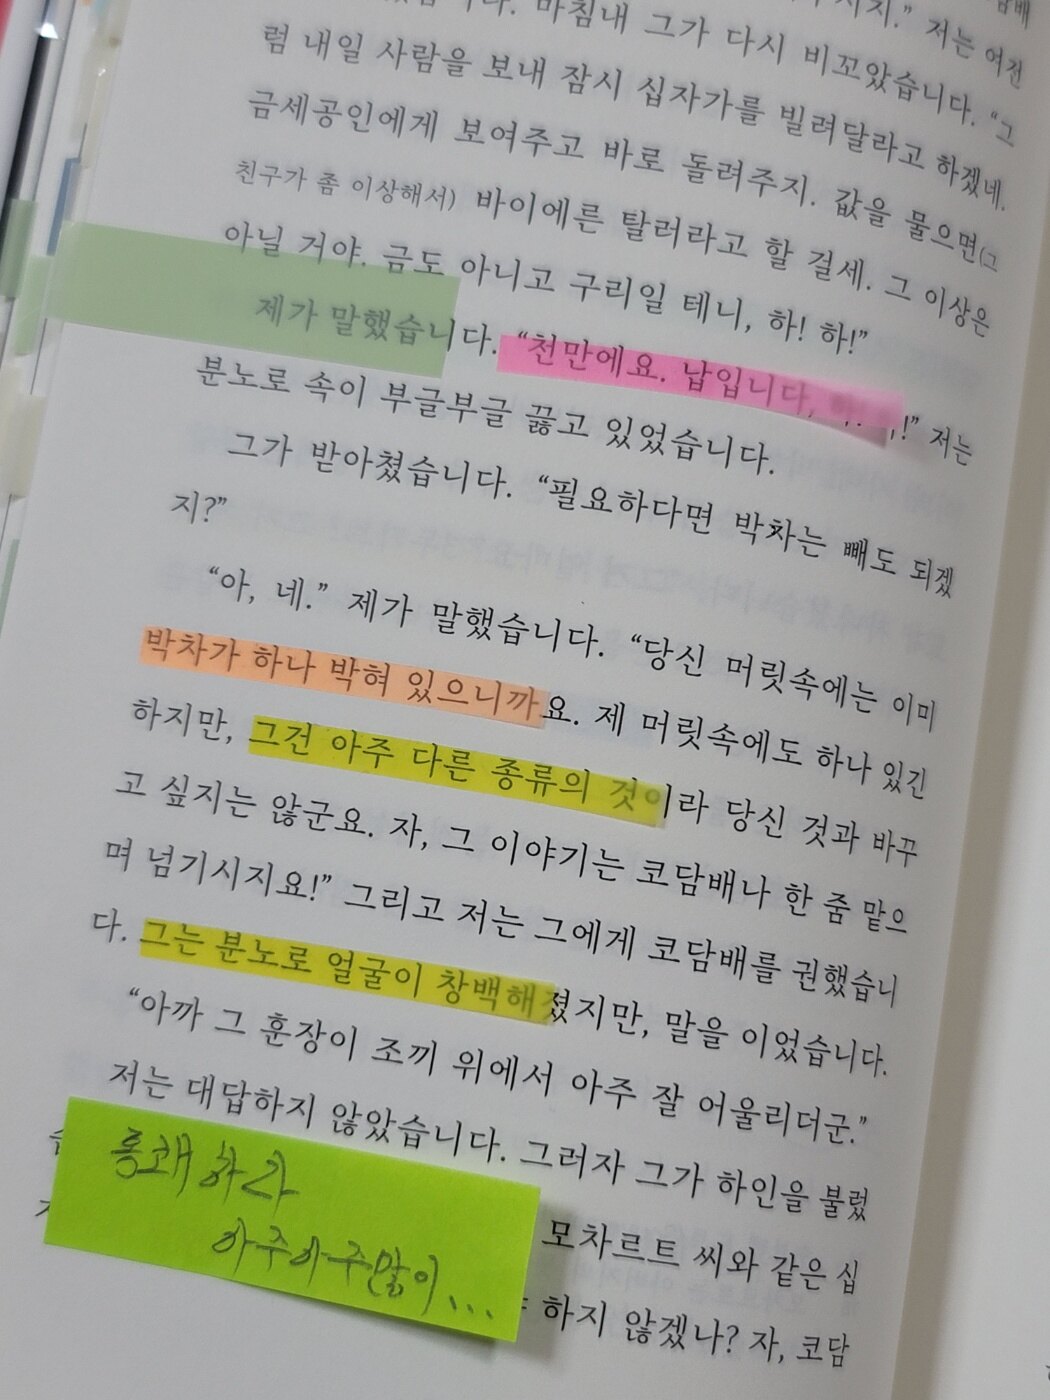 마침내 그가 다시 비꼬았습니다. “그
럼 내일 사람을 보내 잠시 십자가를 빌려달라고 하겠네.
금세공인에게 보여주고 바로 돌려주지. 값을 물으면(그
친구가 좀 이상해서) 바이에른 탈러라고 할 걸세. 그 이상은
아닐 거야. 금도 아니고 구리일 테니, 하! 하!”
제가 말했습니다. “천만에요. 납입니다, 하! 하!” 저는
분노로 속이 부글부글 끓고 있었습니다.
그가 받아쳤습니다. “필요하다면 박차는 빼도 되겠
지?”
“아, 네.” 제가 말했습니다. “당신 머릿속에는 이미
박차가 하나 박혀 있으니까요. 제 머릿속에도 하나 있긴
하지만, 그건 아주 다른 종류의 것이라 당신 것과 바꾸
고 싶지는 않군요. 자, 그 이야기는 코담배나 한 줌 맡으
며 넘기시지요!” 그리고 저는 그에게 코담배를 권했습니
다. 그는 분노로 얼굴이 창백해졌지만, 말을 이었습니다.
“아까 그 훈장이 조끼 위에서 아주 잘 어울리더군.”
저는 대답하지 않았습니다. 그러자 그가 하인을 불렀
모차르트 씨와 같은 십
하지 않겠나? 자, 코담
통쾌하다
아주아주많이...